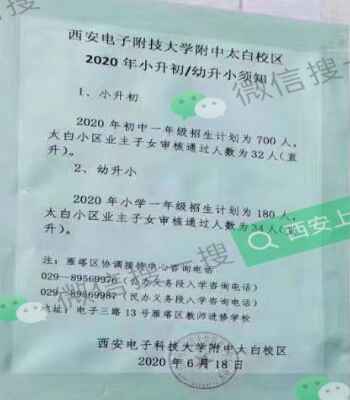 西安电子附技大学附中太白校区
2020年小升初/幼升小须知
1、小升初
2020年初中一年级招生计划为700人，
太白小区业主子女审核通过人数为32人（直
升）。
2、幼升小
2020年小学一年级招生计划为180人，
太白小区业主子女审核通过人数为34人（直
升）。
注：雁塔区协调接待中心咨询电话
029-89569976（民办义务段入学咨询电话）
029-89569987（民办义务段入学咨询电话）
地址：电子三路13号雁塔区教师进修学校
西安电子科技大学附中太白校区
2020年6月18日
微信搜一搜
微信搜一搜
西安上